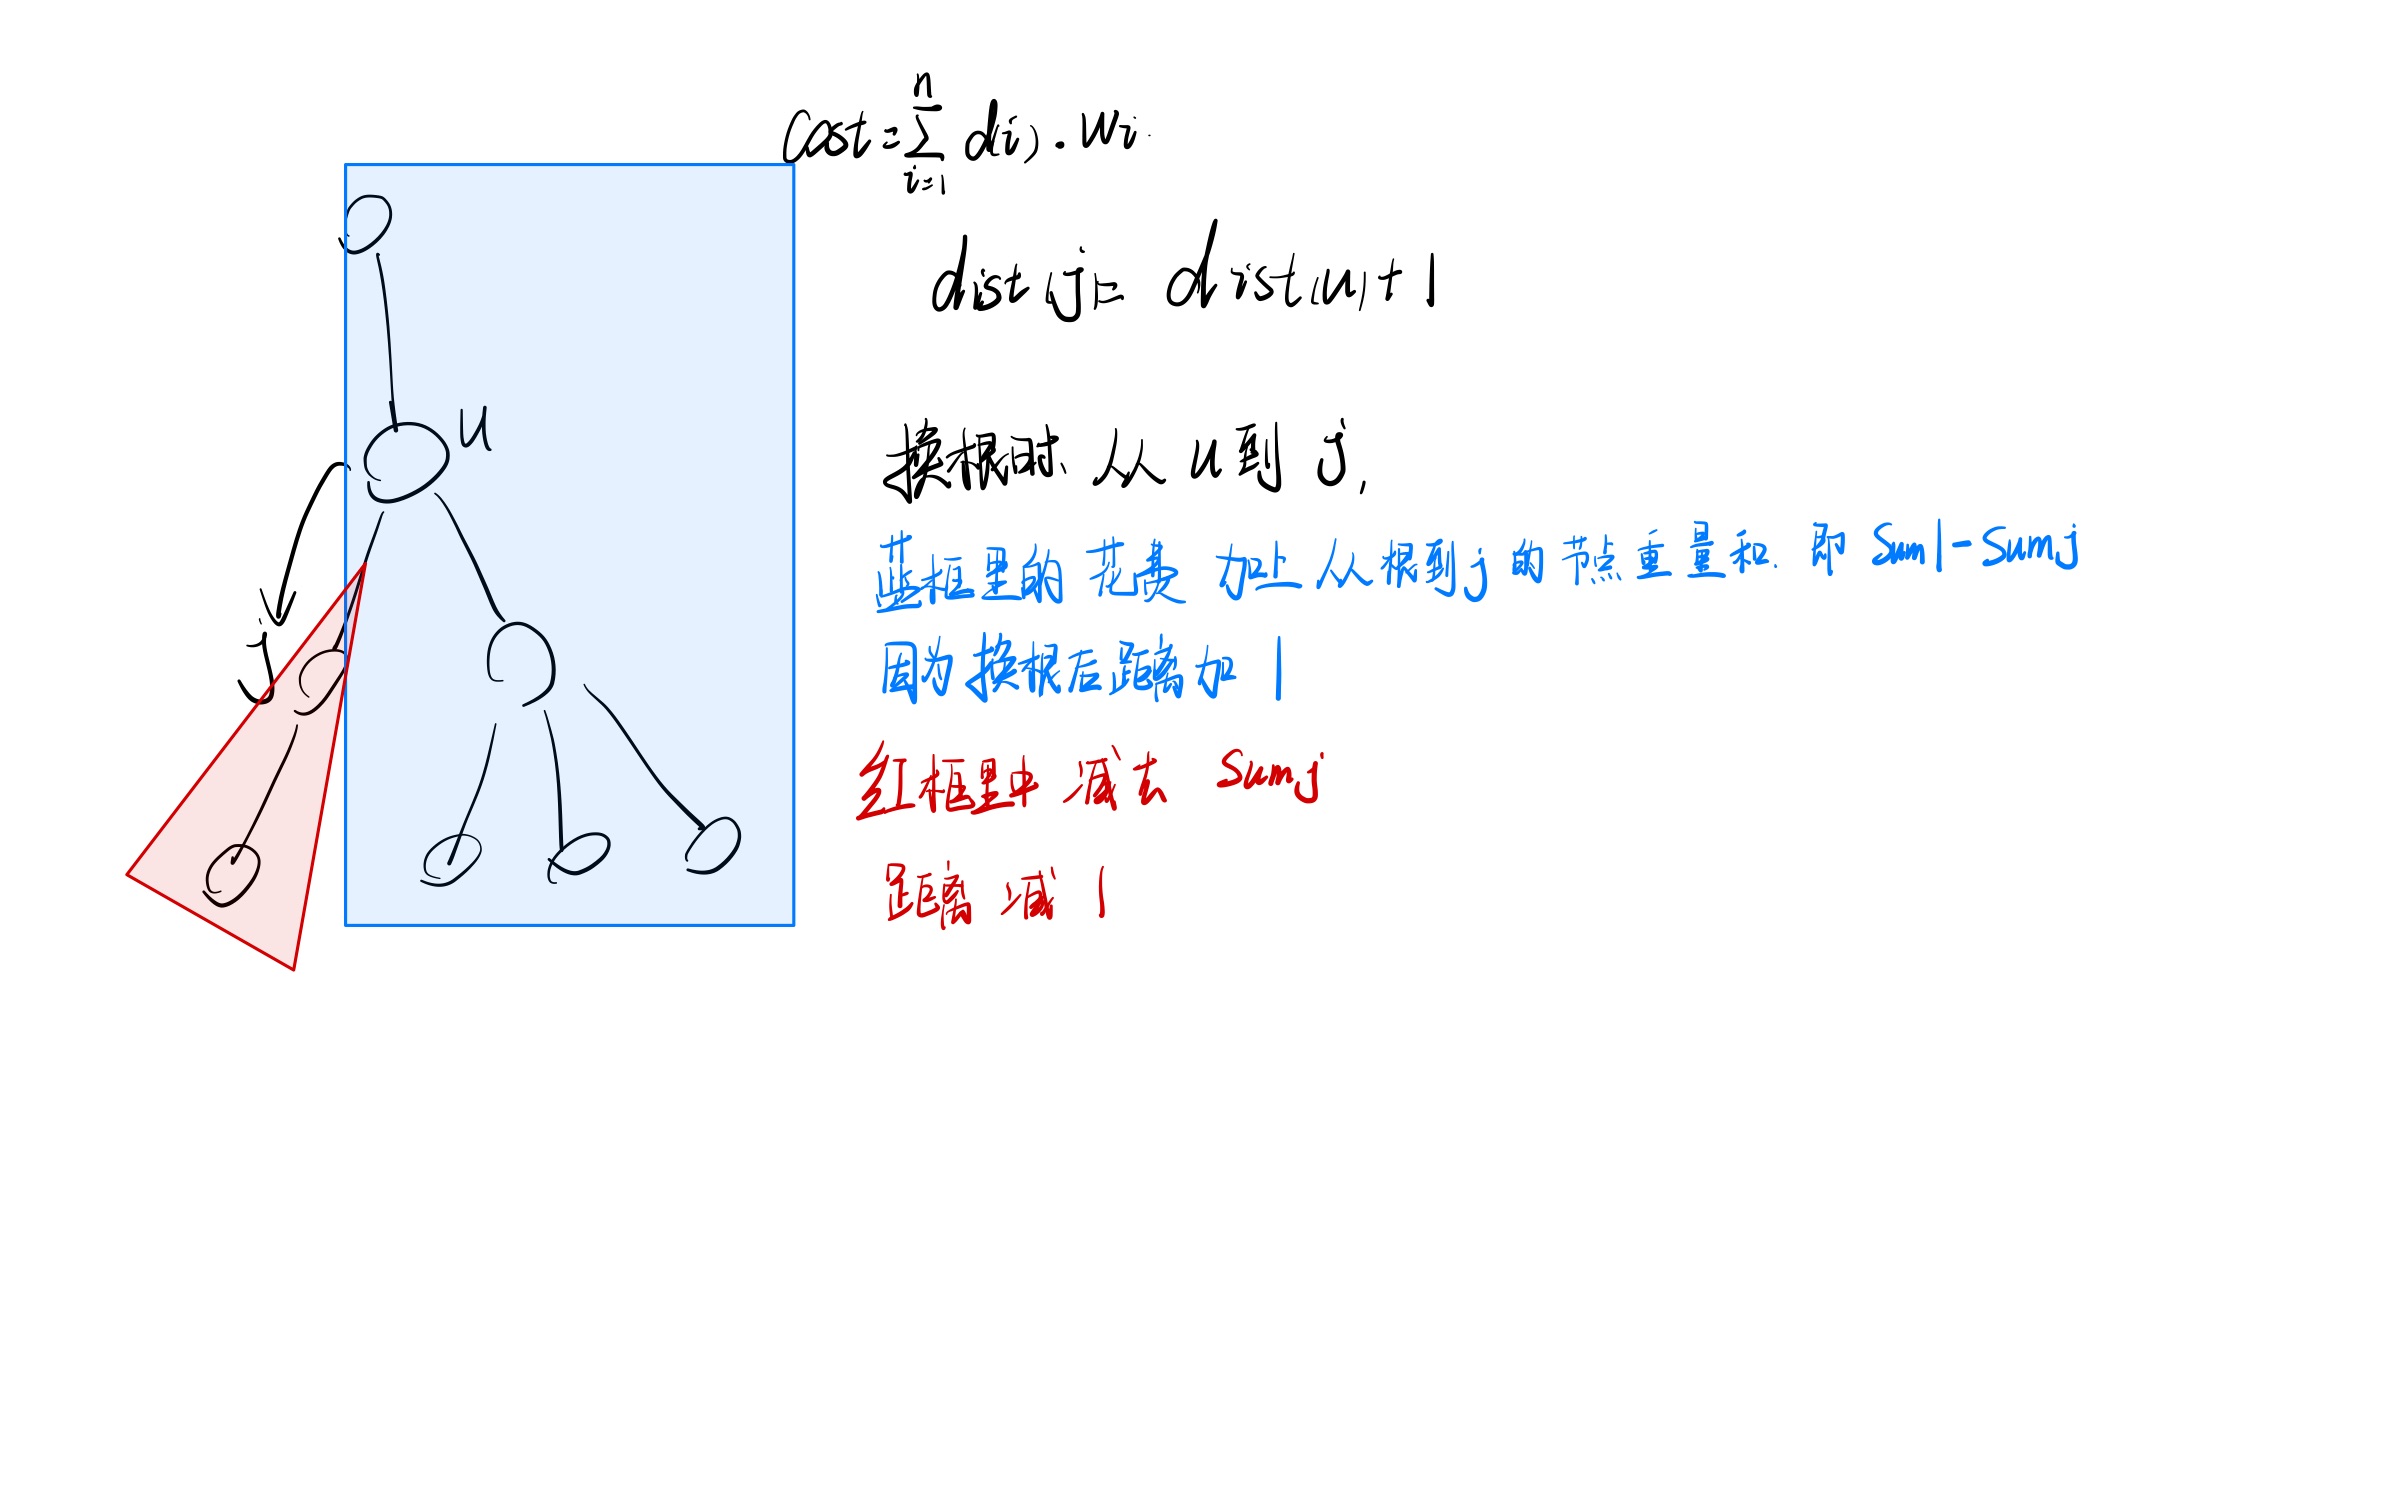 cost = n∑i=1 d(i) · wi
dist(j) = dist(u) + 1
u
换根时 从 u 到 j,
蓝框里的 花费 加上 从根到j的 节点重量和. 即 Sum1 - Sumj
因为 换根后距离加 1
j
红框里中 减去 Sumj
距离 减 1